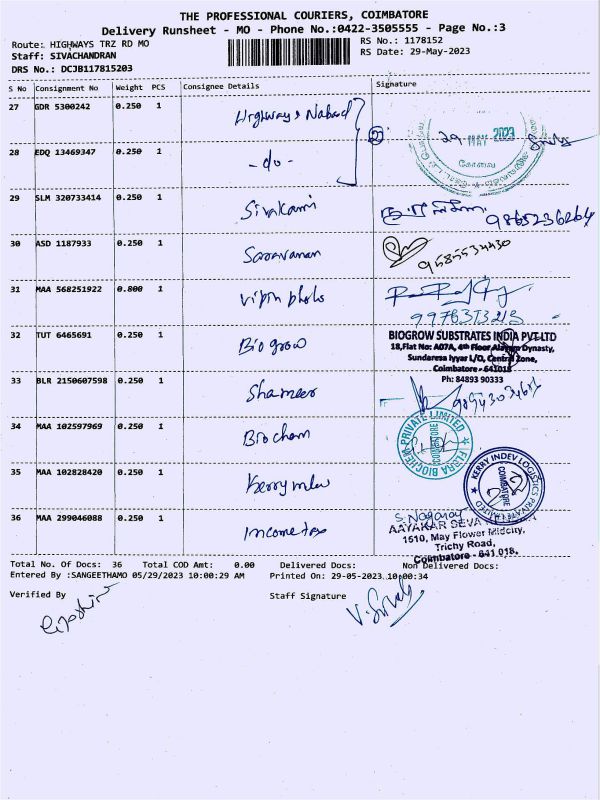 THE PROFESSIONAL COURIERS, COIMBATORE
Delivery Runsheet - MO - Phone No.:0422-3505555 - Page No.:3
Route: HIGHWAYS TRZ RD MO
RS No.: 1178152
Staff: SIVACHANDRAN
RS Date: 29-May-2023
DRS No.: DCJB117815203
S No Consignment No Weight PCS Consignee Details Signature
27 GDR 5300242 0.250 1 Highways Nabard
29 MAY 2023
28 EDQ 13469347 0.250 1 -do-
கோவை
29 SLM 320733414 0.250 1 Sivakami 9865236264
30 ASD 1187933 0.250 1 Saravanan 9585534430
31 MAA 568251922 0.800 1 Vipin photo
32 TUT 6465691 0.250 1 Biogrow
BIOGROW SUBSTRATES INDIA PVT LTD
18,Flat No: A07A, 4th Floor Dynasty,
Sundaresa Iyyar L/O, Central Zone,
Coimbatore - 641018
Ph: 84893 90333
33 BLR 2150607598 0.250 1 Shameer
34 MAA 102597969 0.250 1 Biochem
FLORA BIOCHEM PRIVATE LIMITED
COIMBATORE
35 MAA 102828420 0.250 1 Kerry indev
KERRY INDEV LOGISTICS PRIVATE LIMITED
COIMBATORE
36 MAA 299046088 0.250 1 Income tax
S. Nagaraj
AAYAKAR SEVA
1510, May Flower Midcity,
Trichy Road,
Coimbatore - 641 018.
Total No. Of Docs: 36 Total COD Amt: 0.00 Delivered Docs: Non Delivered Docs:
Entered By :SANGEETHAMO 05/29/2023 10:00:29 AM Printed On: 29-05-2023 10:00:34
Verified By Staff Signature